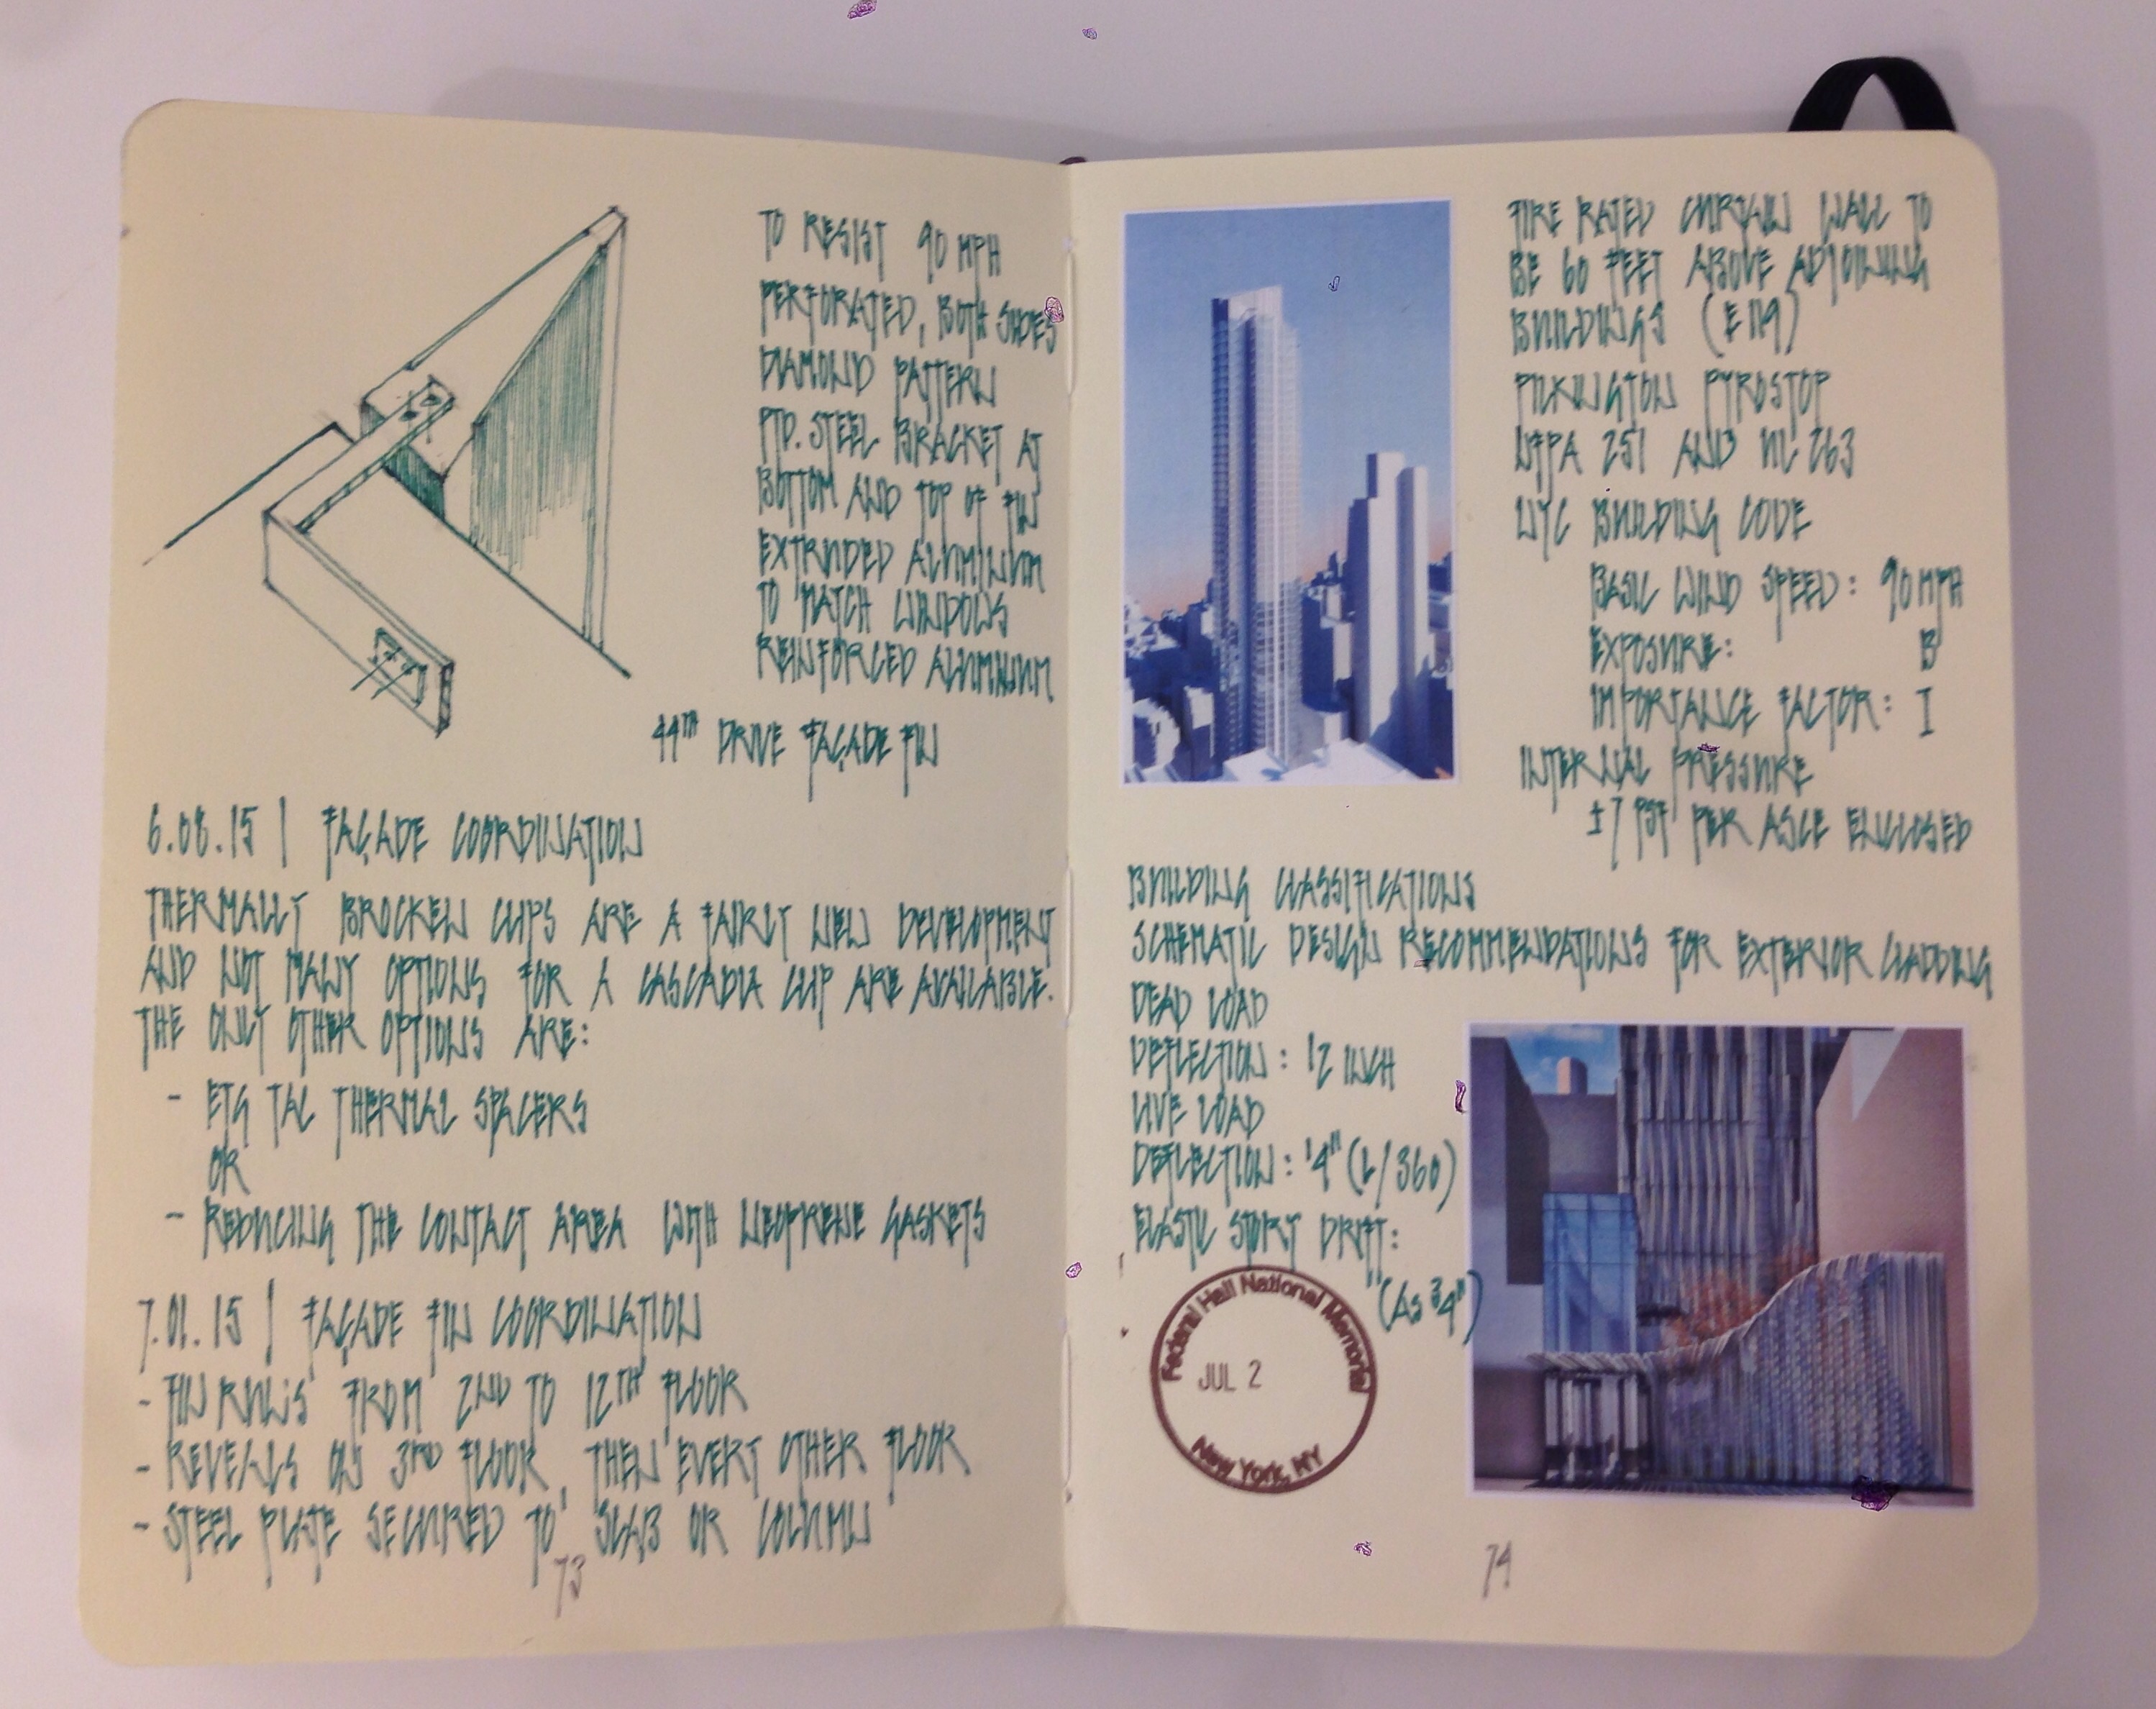 TO RESIST 90 MPH
PERFORATED, BOTH SIDES
DIAMOND PATTERN
PTD. STEEL BRACKET AT
BOTTOM AND TOP OF FIN
EXTRUDED ALUMINUM
TO MATCH WINDOWS
REINFORCED ALUMINUM
44TH DRIVE FAÇADE FIN
6.08.15 | FAÇADE COORDINATION
THERMALLY BROCKEN CLIPS ARE A FAIRLY NEW DEVELOPMENT
AND NOT MANY OPTIONS FOR A CASCADIA CLIP ARE AVAILABLE.
THE ONLY OTHER OPTIONS ARE:
- ETG TAC THERMAL SPACERS
OR
- REDUCING THE CONTACT AREA WITH NEOPRENE GASKETS
7.01.15 | FAÇADE FIN COORDINATION
- FIN RUNS FROM 2ND TO 12TH FLOOR
- REVEALS ON 3RD FLOOR, THEN EVERY OTHER FLOOR
- STEEL PLATE SECURED TO SLAB OR COLUMN
73
FIRE RATED CURTAIN WALL TO
BE 60 FEET ABOVE ADJOINING
BUILDINGS (E119)
PILKINGTON PYROSTOP
NFPA 251 AND UL 263
NYC BUILDING CODE
BASIC WIND SPEED: 90 MPH
EXPOSURE: B
IMPORTANCE FACTOR: I
INTERNAL PRESSURE
±7 PSF PER ASCE ENCLOSED
BUILDING CLASSIFICATIONS
SCHEMATIC DESIGN RECOMMENDATIONS FOR EXTERIOR CLADDING
DEAD LOAD
DEFLECTION: 1/2 INCH
LIVE LOAD
DEFLECTION: 1/4" (L/360)
ELASTIC STORY DRIFT:
(As 3/4")
Federal Hall National Memorial
JUL 2
New York, NY
74